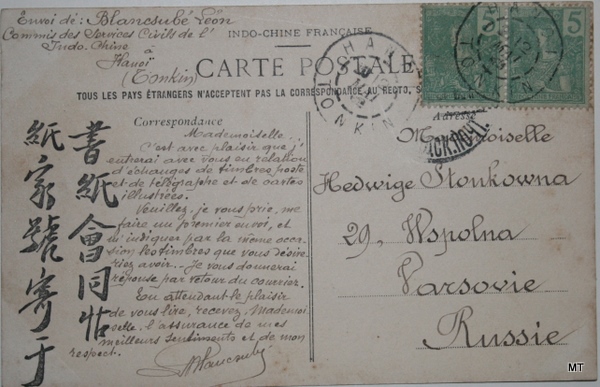 Envoi de : Blancsubé Léon
Commis des Services Civils de l'
Indo-Chine
à
Hanoï
(Tonkin)
INDO-CHINE FRANÇAISE
CARTE POSTALE
TOUS LES PAYS ÉTRANGERS N'ACCEPTENT PAS LA CORRESPONDANCE AU RECTO, S
5
5
HANOI
TONKIN
HANOI
TONKIN
Correspondance
Mademoiselle.
C'est avec plaisir que j'
entrerai avec vous en relation
d'échanges de timbres poste
et de télégraphe et de cartes
illustrées.
Veuillez, je vous prie, me
faire un premier envoi, et
m'indiquer par la même occa-
sion les timbres que vous désire-
riez avoir. Je vous donnerai
réponse par retour du courrier.
En attendant le plaisir
de vous lire, recevez, Mademoi-
selle, l'assurance de mes
meilleurs sentiments et de mon
respect.
Blancsubé
Adresse
Mademoiselle
Hedwige Stonkowna
29, Wspolna
Varsovie
Russie
書紙會同帖
紙家號寄于
MT